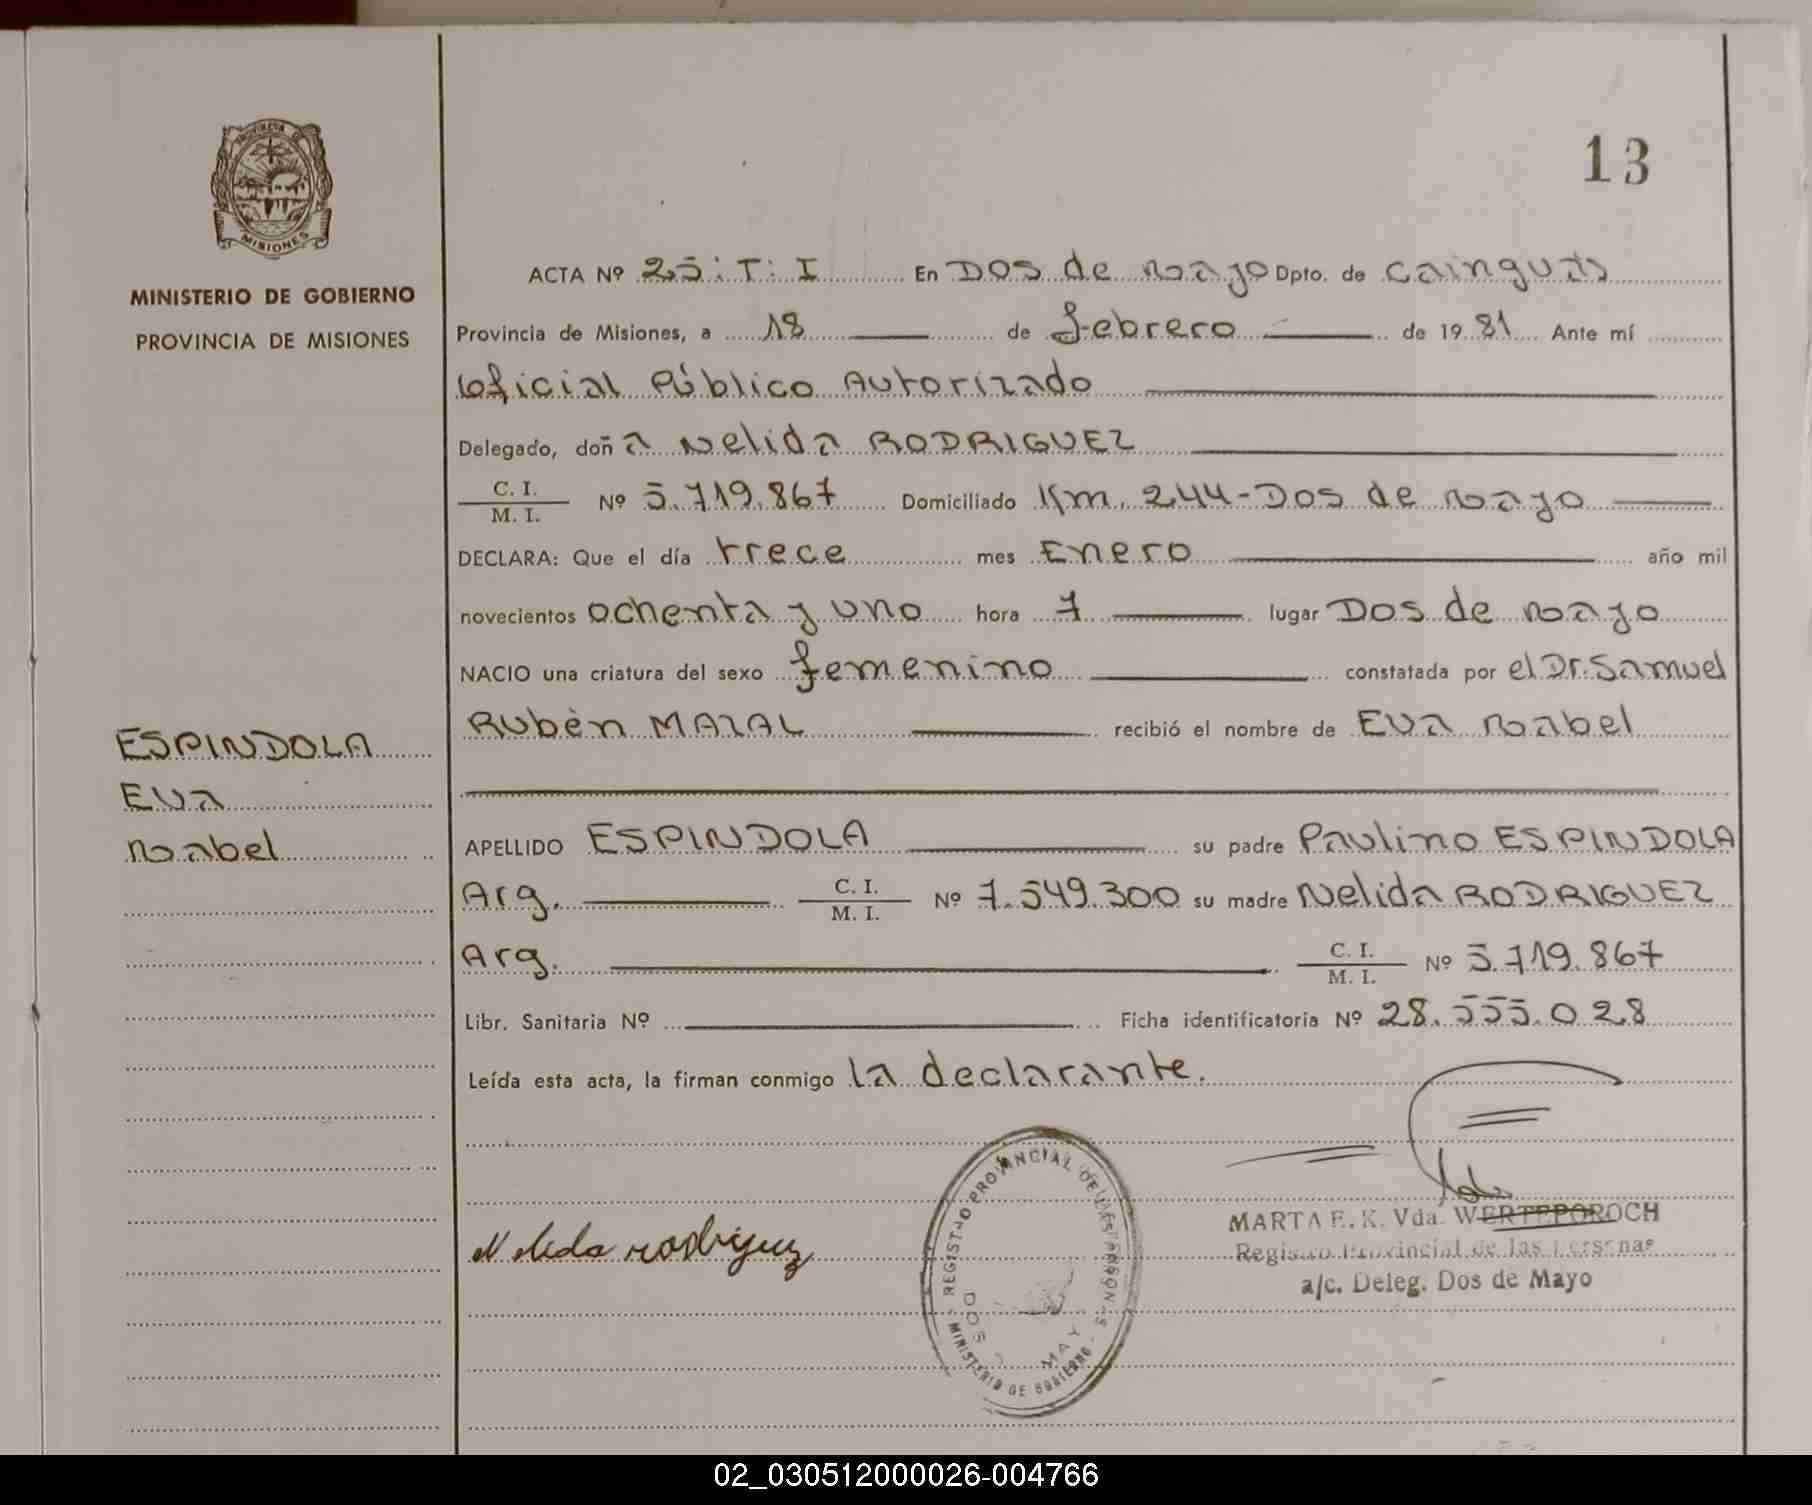 13
PROVINCIA DE
MISIONES
MINISTERIO DE GOBIERNO
PROVINCIA DE MISIONES
ACTA Nº 25: T: I En Dos de Mayo Dpto. de Cainguás
Provincia de Misiones, a 18 de febrero de 1981 Ante mí
Oficial Público Autorizado
Delegado, doña Nelida RODRIGUEZ
C. I.
M. I. Nº 5.719.867 Domiciliado Km. 244-Dos de Mayo
DECLARA: Que el día trece mes Enero año mil
novecientos ochenta y uno hora 7 lugar Dos de Mayo
NACIO una criatura del sexo femenino constatada por el Dr. Samuel
Rubén MAZAL recibió el nombre de Eva Mabel
ESPINDOLA
Eva
Mabel
APELLIDO ESPINDOLA su padre Paulino ESPINDOLA
Arg. C. I.
M. I. Nº 7.549.300 su madre Nelida RODRIGUEZ
Arg. C. I.
M. I. Nº 5.719.867
Libr. Sanitaria Nº Ficha identificatoria Nº 28.555.028
Leída esta acta, la firman conmigo la declarante.
Nelida rodriguez
REGISTRO PROVINCIAL DE LAS PERSONAS
DOS MAY
MINISTERIO DE GOBIERNO
MARTA E. K. Vda. WERTEPOROCH
Registro Provincial de las Personas
a/c. Deleg. Dos de Mayo
02_030512000026-004766